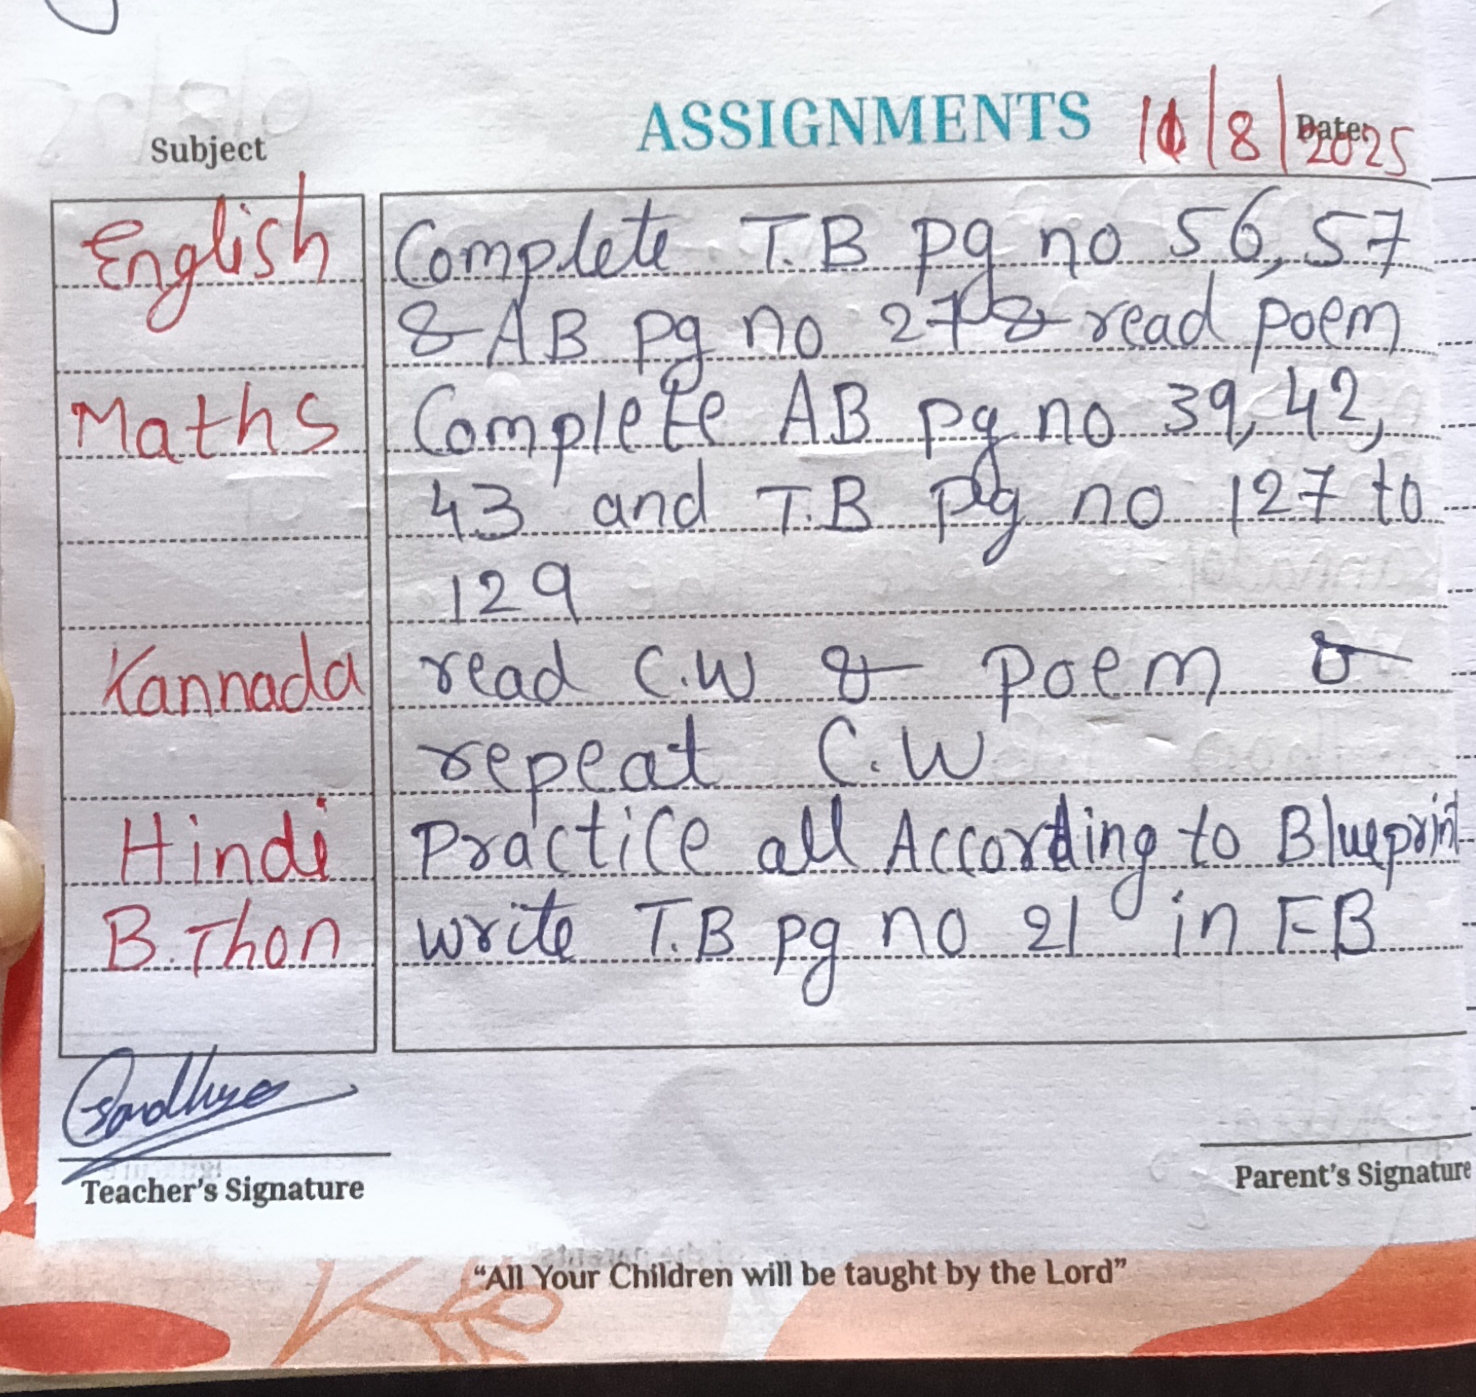 ASSIGNMENTS
Subject
Date: 11/8/2025
English Complete T.B pg no 56, 57
& AB pg no 27 & read poem
Maths Complete AB pg no 39, 42,
43 and T.B pg no 127 to
129
Kannada read C.W & poem &
repeat C.W
Hindi Practice all According to Blueprint
B.Thon write T.B pg no 21 in FB
Sandhya
Teacher's Signature
Parent's Signature
"All Your Children will be taught by the Lord"